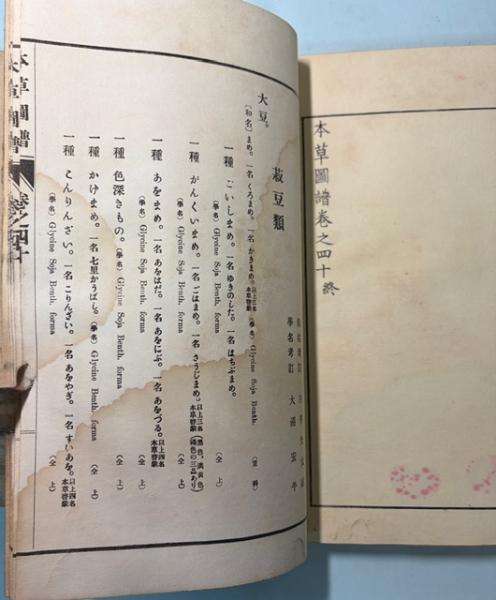 本草圖譜卷之四十終
大沼宏平
菽豆類
大豆。
〔和名〕まめ。一名 くろまめ。一名 かきまめ。以上三名本草啓蒙 (學名) Glycine Soja Benth. (荳科)
一種 ごいしまめ。一名 ゆきのした。一名 はちぶまめ。
一種 がんくいまめ。一名 こはまめ。一名 さうじまめ。以上三名本草啓蒙 (仝上)
一種 あをまめ。一名 あをはだ。一名 あをにぶ。一名 あをづる。以上四名本草啓蒙
(學名) Glycine Soja Benth. forma (仝上)
一種 色深きもの。(學名) Glycine Soja Benth. forma (仝上)
一種 かけまめ。一名 七里かうばし。(學名) Glycine Benth. forma (仝上)
一種 こんりんざい。一名 こりんざい。一名 あをやぎ。一名 すいあを。以上四名本草啓蒙
(學名) Glycine Soja Benth. forma (仝上)
本草圖譜 卷之四十